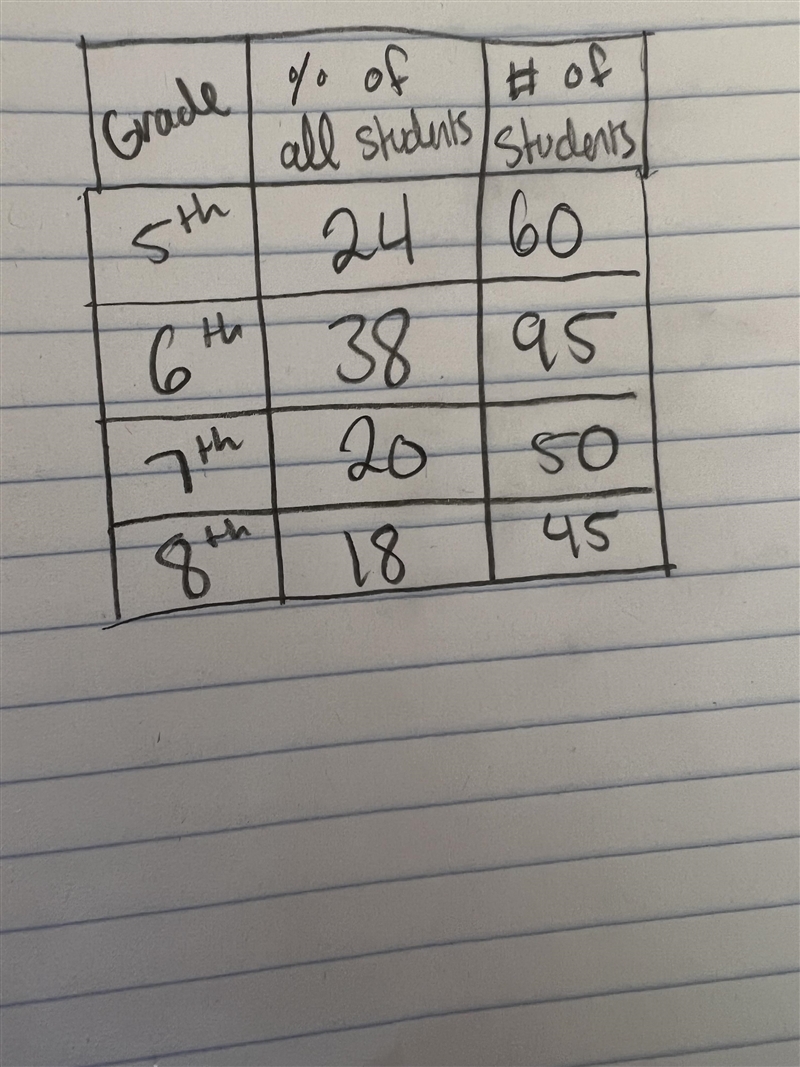 Grade % of all students # of students
5th 24 60
6th 38 95
7th 20 50
8th 18 45